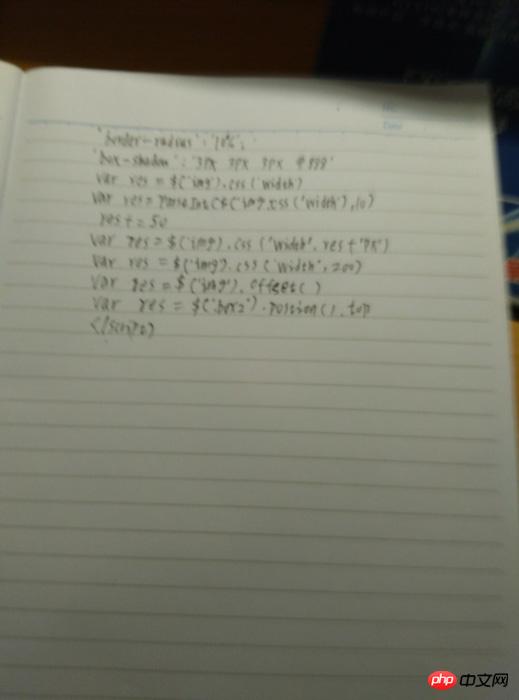 No:
Date
'border-radius':'10%',
'box-shadow':'3px 3px 3px #888'
var res = $('img').css('width')
var res = parseInt($('img').css('width'),10)
res += 50
var res = $('img').css('width', res+'px')
var res = $('img').css('width',200)
var res = $('img').offset()
var res = $('.box2').postion().top
</script>
php 中文网